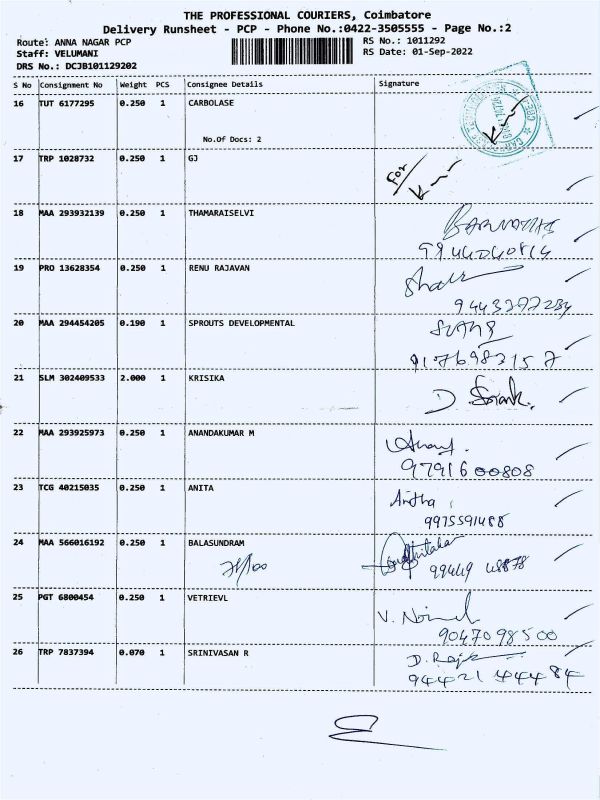 THE PROFESSIONAL COURIERS, Coimbatore
Delivery Runsheet - PCP - Phone No.:0422-3505555 - Page No.:2
Route: ANNA NAGAR PCP RS No.: 1011292
Staff: VELUMANI RS Date: 01-Sep-2022
DRS No.: DCJB101129202
S No Consignment No Weight PCS Consignee Details Signature
16 TUT 6177295 0.250 1 CARBOLASE
No.Of Docs: 2
17 TRP 1028732 0.250 1 GJ
For
18 MAA 293932139 0.250 1 THAMARAISELVI
19 PRO 13628354 0.250 1 RENU RAJAVAN
20 MAA 294454205 0.190 1 SPROUTS DEVELOPMENTAL
21 SLM 302409533 2.000 1 KRISIKA
22 MAA 293925973 0.250 1 ANANDAKUMAR M
9791600808
23 TCG 40215035 0.250 1 ANITA
Anitha
9975591488
24 MAA 566016192 0.250 1 BALASUNDRAM
25 PGT 6800454 0.250 1 VETRIEVL
9047098500
26 TRP 7837394 0.070 1 SRINIVASAN R
9442144484